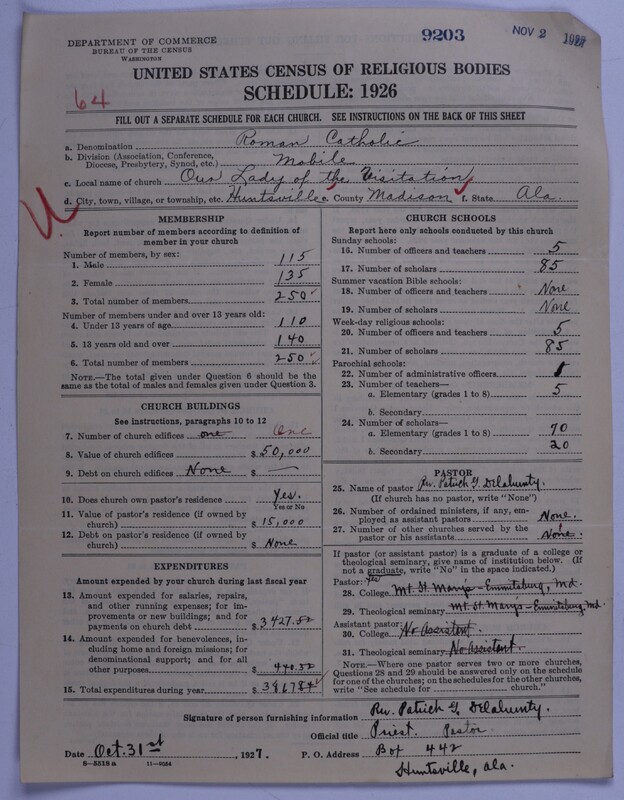 DEPARTMENT OF COMMERCE
BUREAU OF THE CENSUS
WASHINGTON
9203
NOV 2
UNITED STATES CENSUS OF RELIGIOUS BODIES
SCHEDULE: 1926
64
FILL OUT A SEPARATE SCHEDULE FOR EACH CHURCH. SEE INSTRUCTIONS ON THE BACK OF THIS SHEET
a. Denomination Roman Catholic
b. Division (Association, Conference, Diocese, Presbytery, Synod, etc.) Mobile
c. Local name of church Our Lady of the Visitation
d. City, town, village, or township, etc. Huntsville e. County Madison f. State Ala.
MEMBERSHIP
Report number of members according to definition of
member in your church
Number of members, by sex:
1. Male 115
2. Female 135
3. Total number of members 250
Number of members under and over 13 years old:
4. Under 13 years of age 110
5. 13 years old and over 140
6. Total number of members 250
NOTE.—The total given under Question 6 should be
the same as total of males and females given under Question 3.
CHURCH BUILDINGS
See instructions, paragraphs 10 to 12
7. Number of church edifices one One
8. Value of church edifices $50,000
9. Debt on church edifices None $ —
10. Does church own pastor's residence Yes.
Yes or No
11. Value of pastor's residence (if owned by
church) $15,000
12. Debt on pastor's residence (if owned by
church) $ None
EXPENDITURES
Amount expended by your church during last fiscal year
13. Amount expended for salaries, repairs,
and other running expenses; for im-
provements or new buildings; and for
payments on church debt $3427.52
14. Amount expended for benevolences, in-
cluding home and foreign missions; for
denominational support; and for all
other purposes
15. Total expenditures during year
CHURCH SCHOOLS
Report here only schools conducted by this church
Sunday schools:
16. Number of officers and teachers 5
17. Number of scholars 85
Summer vacation Bible schools:
18. Number of officers and teachers None
19. Number of scholars None
Week-day religious schools:
20. Number of officers and teachers 5
21. Number of scholars 85
Parochial schools:
22. Number of administrative officers 1
23. Number of teachers—
a. Elementary (grades 1 to 8) 5
b. Secondary
24. Number of scholars—
a. Elementary (grades 1 to 8) 90
b. Secondary 20
PASTOR
25. Name of pastor Rev. Patrick G. Delahunty.
(If church has no pastor, write "None")
26. Number of ordained ministers, if any, em-
ployed as assistant pastors None.
27. Number of other churches served by the
pastor or his assistants None.
If pastor (or assistant pastor) is a graduate of a college or
theological seminary, give name of institution below. (If
not a graduate, write "No" in the space indicated.)
Pastor: Yes
28. College Mt. St. Mary's - Emmitsburg, Md.
29. Theological seminary Mt. St Mary's - Emmitsburg, Md.
Assistant pastor:
30. College No Assistant.
31. Theological seminary No Assistant.
NOTE.—Where one pastor serves two or more churches,
Questions 28 and 29 should be answered only on the schedule
for one of the churches; on the schedules for the other churches,
write "See schedule for church."
Signature of person furnishing information Rev. Patrick G. Delahunty.
Official title Priest. Pastor.
Date Oct. 31st, 1927. P. O. Address Box 442
8—5518a 11—9034
Huntsville, Ala.